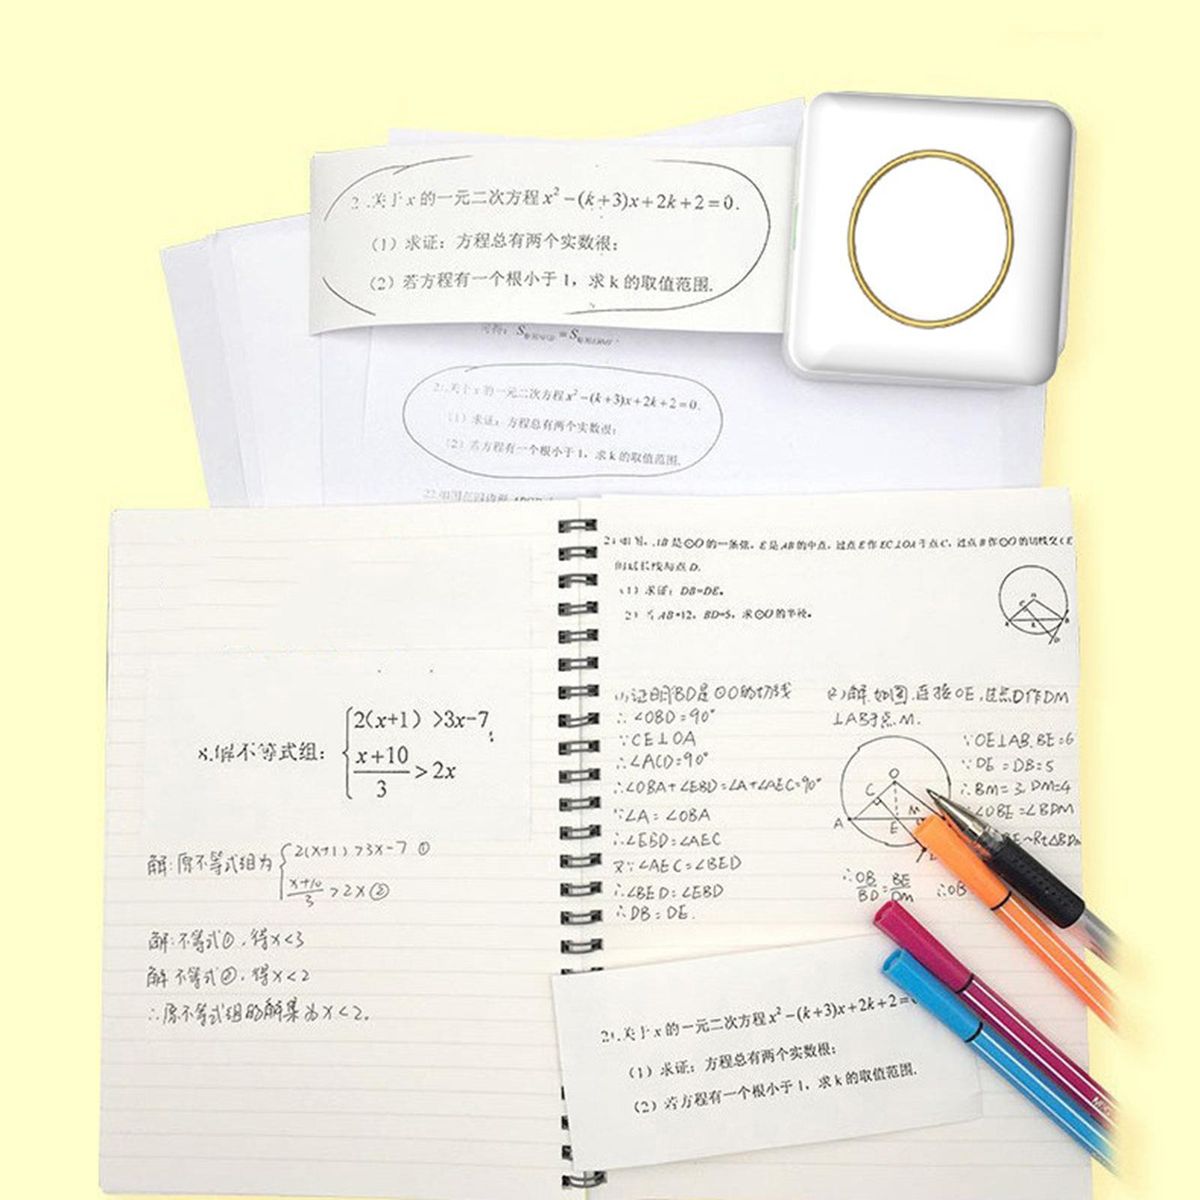 2 .关于 x 的一元二次方程 x²－(k+3)x+2k+2=0.
（1）求证：方程总有两个实数根；
（2）若方程有一个根小于 1，求 k 的取值范围.
2 .关于 x 的一元二次方程 x²－(k+3)x+2k+2=0.
（1）求证：方程总有两个实数根；
（2）若方程有一个根小于 1，求 k 的取值范围.
8.解不等式组：{2(x+1) >3x-7,
(x+10)/3 > 2x
解:原不等式组为 {2(x+1)>3x-7 ①
(x+10)/3 >2x ②
解:不等式①,得x<3
解 不等式②,得x<2
∴原不等式组的解集为x<2.
AB 是⊙O 的一条弦，E 是 AB 的中点，过点 E 作 EC⊥OA 于点 C，过点 B 作⊙O 的切线交 CE
的延长线与点 D.
（1）求证：DB=DE.
2）若 AB=12，BD=5，求⊙O 的半径。
O
C
A
E
B
D
(1)证明BD是⊙O的切线
∴∠OBD=90°
∵CE⊥OA
∴∠ACD=90°
∴∠OBA+∠EBD=∠A+∠AEC=90°
∵∠A=∠OBA
∴∠EBD=∠AEC
又∵∠AEC=∠BED
∴∠BED=∠EBD
∴DB=DE.
(2)解 如图,连接OE,过点D作DM
⊥AB于点M.
O
C
M
A
E
∵OE⊥AB.BE=6
∵DE=DB=5
∴BM=3.DM=4
∵∠OBE=∠BDM
∽Rt△BDM
∴OB/BD=BE/DM
∴OB
21.关于 x 的一元二次方程 x²－(k+3)x+2k+2=
（1）求证：方程总有两个实数根；
（2）若方程有一个根小于 1，求 k 的取值范围.